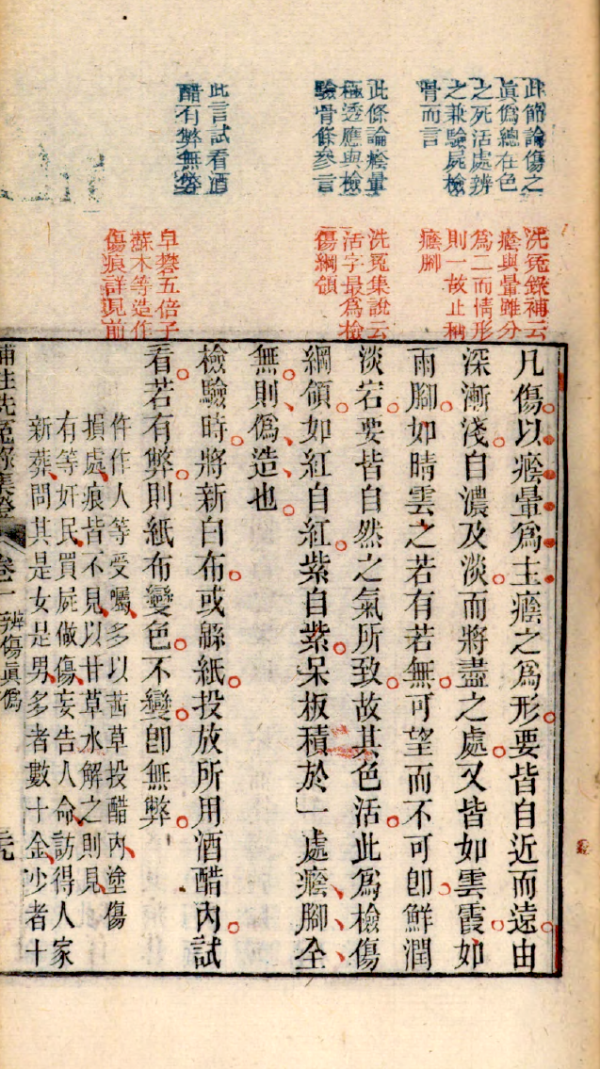 此節論傷之
真偽總在色
之死活處辨
之兼驗屍檢
骨而言
此條論癊暈
極透應與檢
驗骨條參言
此言試看酒
醋有弊無弊
洗冤錄補云
癊與暈雖分
為二而情形
則一故止稱
癊腳
洗冤集說云
活字最為檢
傷綱領
皁礬五倍子
蘇木等造作
傷痕詳見前
凡傷以癊暈爲主癊之爲形要皆自近而遠由
深漸淺自濃及淡而將盡之處又皆如雲霞如
雨腳如晴雲之若有若無可望而不可卽鮮潤
淡宕要皆自然之氣所致故其色活此爲檢傷
綱領如紅自紅紫自紫呆板積於一處癊腳全
無則僞造也
檢驗時將新白布或緜紙投放所用酒醋內試
看若有弊則紙布變色不變卽無弊
仵作人等受囑多以茜草投醋內塗傷
損處痕皆不見以甘草水解之則見
有等奸民買屍做傷妄告人命訪得人家
新葬問其是女是男多者數十金少者十
補註洗冤錄集證 卷一 辨傷眞僞 三九